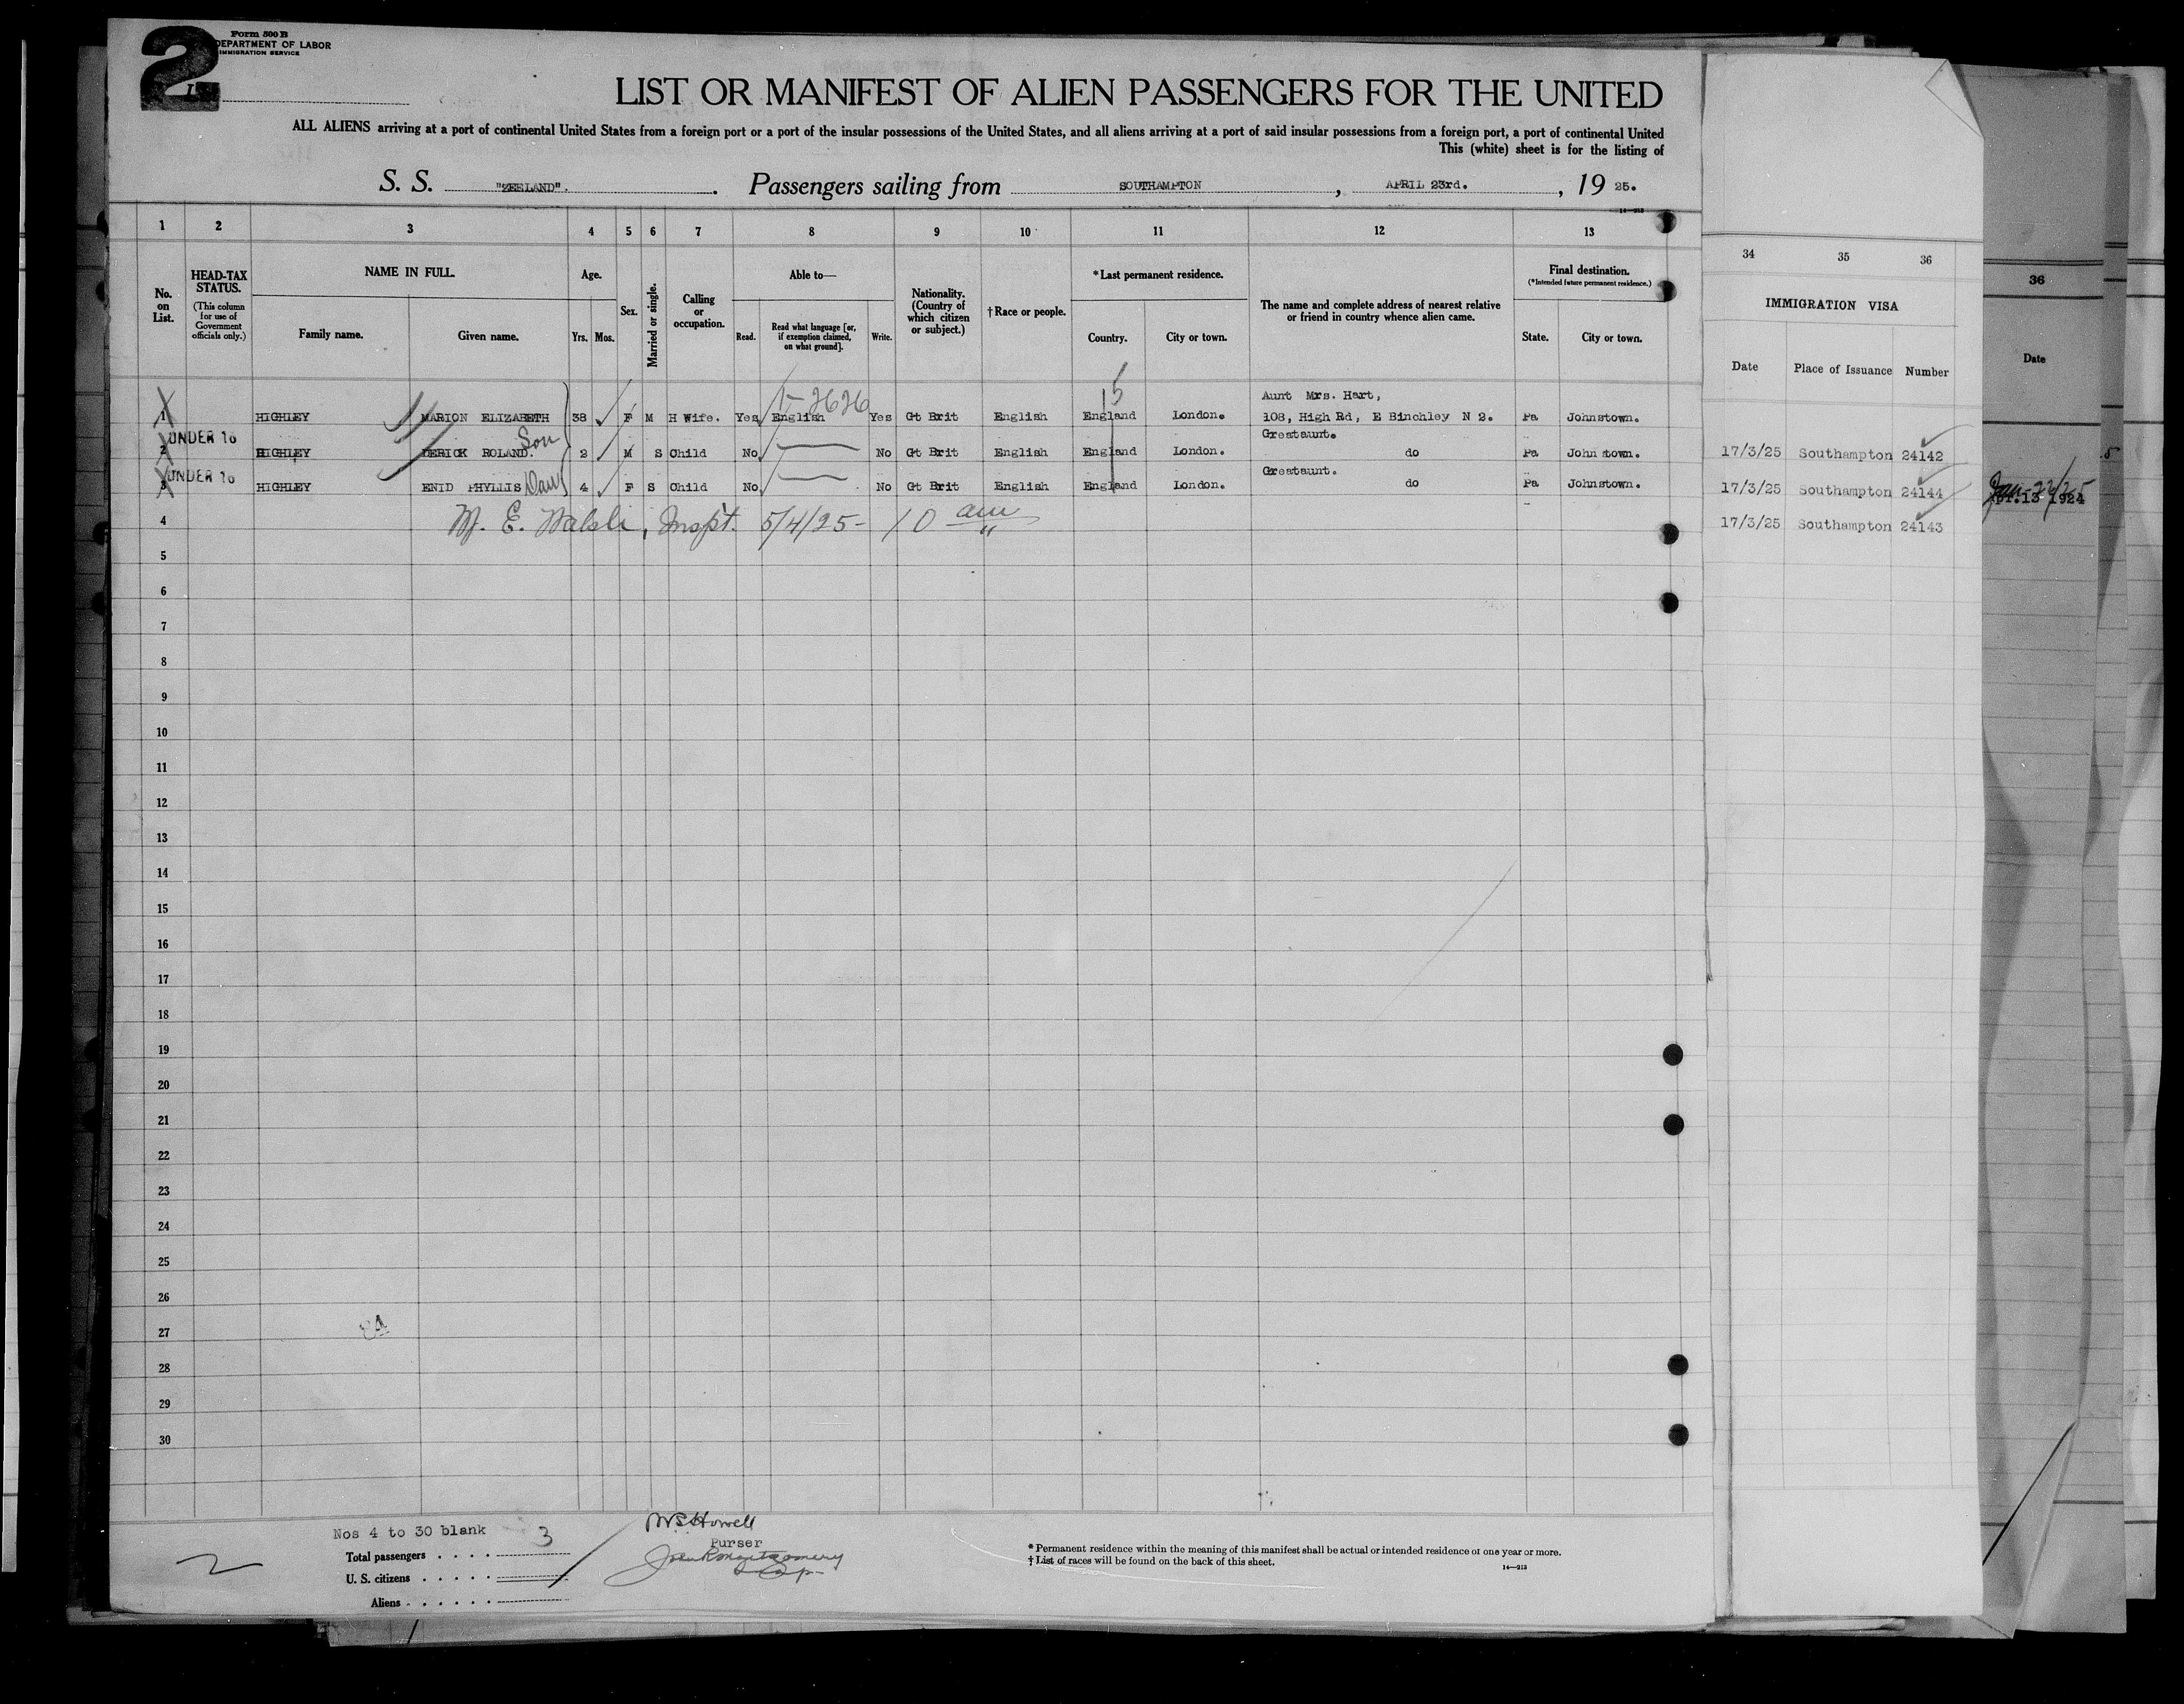 2
Form 500 B
DEPARTMENT OF LABOR
IMMIGRATION SERVICE
LIST OR MANIFEST OF ALIEN PASSENGERS FOR THE UNITED
ALL ALIENS arriving at a port of continental United States from a foreign port or a port of the insular possessions of the United States, and all aliens arriving at a port of said insular possessions from a foreign port, a port of continental United
This (white) sheet is for the listing of
S. S. "ZEELAND". Passengers sailing from SOUTHAMPTON, APRIL 23rd., 1925.
14—913
1 2 3 4 5 6 7 8 9 10 11 12 13
34 35 36
36
No. on List.
HEAD-TAX STATUS.
(This column for use of Government officials only.)
NAME IN FULL.
Family name. Given name.
Age.
Yrs. Mos.
Sex.
Married or single.
Calling or occupation.
Able to—
Read. Read what language [or, if exemption claimed, on what ground]. Write.
Nationality. (Country of which citizen or subject.)
†Race or people.
*Last permanent residence.
Country. City or town.
The name and complete address of nearest relative or friend in country whence alien came.
Final destination.
(*Intended future permanent residence.)
State. City or town.
IMMIGRATION VISA
Date Place of Issuance Number
Date
15
5-2626
Aunt Mrs. Hart,
1 HIGHLEY MARION ELIZABETH 38 F M H Wife. Yes English Yes Gt Brit English England London. 108, High Rd, E Binchley N 2. Pa Johnstown.
UNDER 16 Son Greataunt.
2 HIGHLEY DERICK ROLAND. 2 M S Child No No Gt Brit English England London. do Pa Johnstown. 17/3/25 Southampton 24142
UNDER 16 Greataunt.
3 HIGHLEY ENID PHYLLIS Dau 4 F S Child No No Gt Brit English England London. do Pa Johnstown. 17/3/25 Southampton 24144
4 M. E. Walsh, Inspt. 5/4/25- 10 am 17/3/25 Southampton 24143
5
6
7
8
9
10
11
12
13
14
15
16
17
18
19
20
21
22
23
24
25
26
27
28
29
30
Nos 4 to 30 blank
Total passengers . . . . 3
U. S. citizens . . . . .
Aliens . . . . . .
2
Howell
Purser
* Permanent residence within the meaning of this manifest shall be actual or intended residence of one year or more.
† List of races will be found on the back of this sheet.
14—913